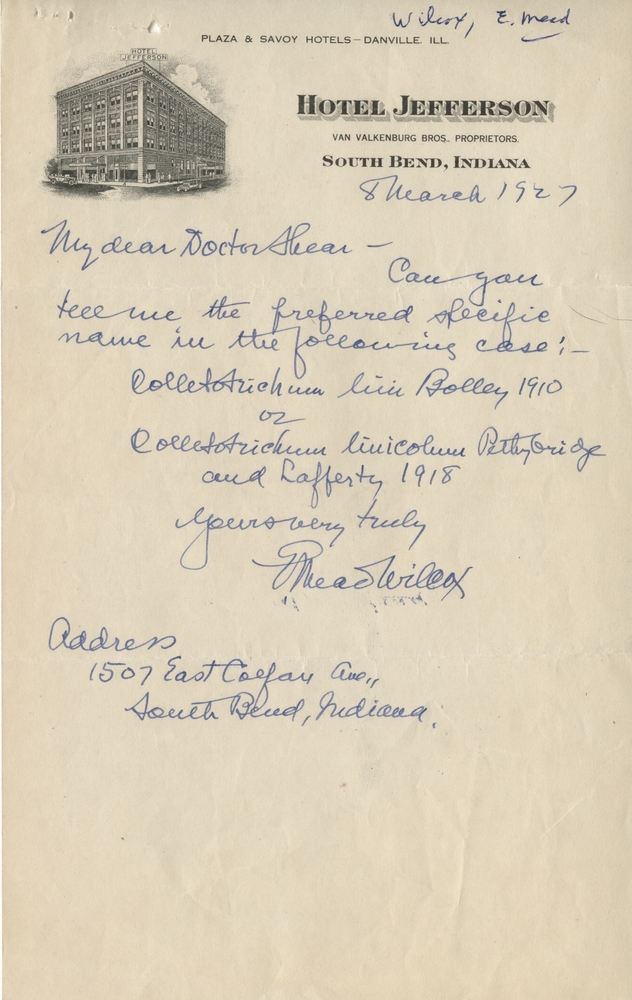 Wilcox, E. Mead
PLAZA & SAVOY HOTELS—DANVILLE. ILL.
HOTEL
JEFFERSON
HOTEL JEFFERSON
VAN VALKENBURG BROS., PROPRIETORS.
SOUTH BEND, INDIANA
8 March 1927
My dear Doctor Shear —
Can you
tell me the preferred specific
name in the following case:—
Colletotrichum lini Bolley 1910
or
Colletotrichum linicolum Pethybridge
and Lafferty 1918
Yours very truly
E Mead Wilcox
Address
1507 East Colfax Ave.,
South Bend, Indiana.